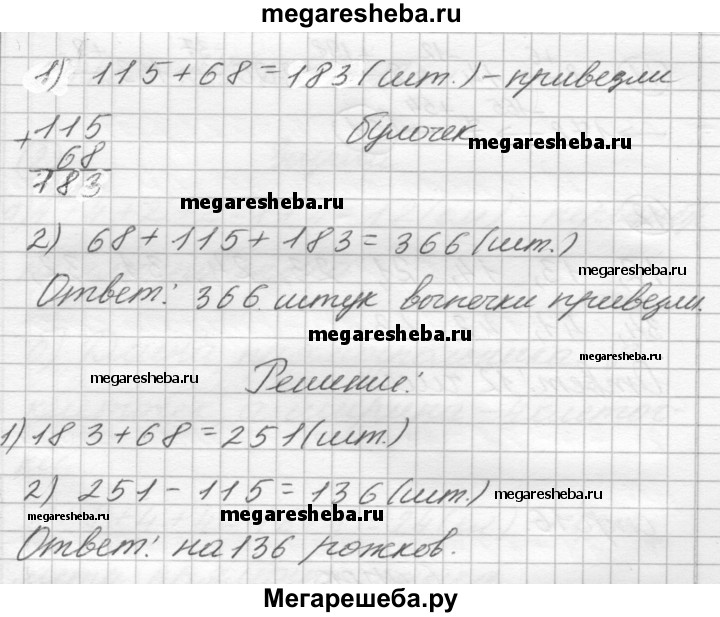 megaresheba.ru
1) 115+68=183(шт.)-привезли
+115
булочек megaresheba.ru
68
183 megaresheba.ru
2) 68+115+183=366(шт.)
megaresheba.ru
Ответ: 366 штук выпечки привезли.
megaresheba.ru
megaresheba.ru
megaresheba.ru Решение:
1) 183+68=251(шт.)
2) 251-115=136(шт.) megaresheba.ru
megaresheba.ru megaresheba.ru
Ответ: на 136 рожков.
Мегарешеба.ру